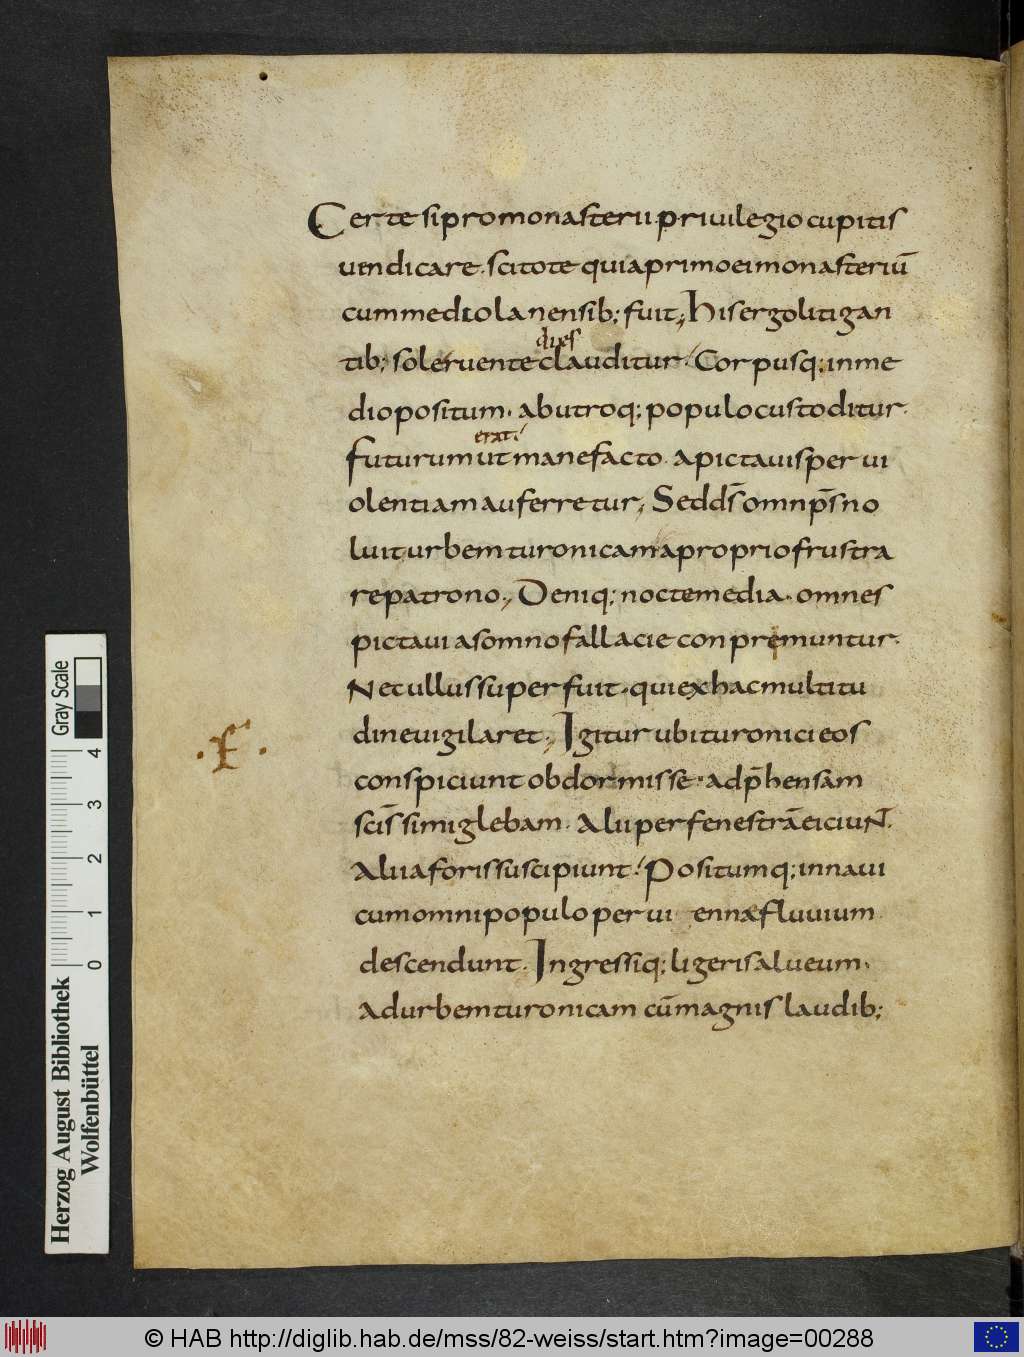 Certe si pro monasterii privilegio cupitis
vindicare. scitote quia primo ei monasteriū
cum mediolanensib; fuit; his ergo litigan
tib; sole ruente clauditur. Corpusq; in me
dies
dio positum. ab utroq; populo custoditur.
erat.
futurum ut mane facto. a pictavis per vi
olentiam auferretur; Sed d̄s omnp̄s no
luit urbem turonicam a proprio frustra
re patrono; Deniq; nocte media. omnes
pictavi a somno fallacie conpremuntur.
Nec ullus superfuit. qui ex hac multitu
dine vigilaret; Igitur ubi turonici eos
conspiciunt obdormisse. adp̄hensam
sc̄issimi glebam. Alii per fenestrā eiciuNT.
Alii a foris suscipiunt. Positumq; in navi
cum omni populo per vi ennæ fluvium
descendunt. Ingressiq; ligeris alveum.
Ad urbem turonicam cū magnis laudib;
.f.
Gray Scale
4 3 2 1 0
Herzog August Bibliothek
Wolfenbüttel
© HAB http://diglib.hab.de/mss/82-weiss/start.htm?image=00288